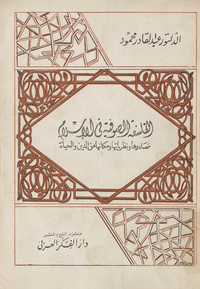 الدكتور عبد القادر محمود
الفلسفة الصوفية في الإسلام
مصادرها ونظرياتها ومكانها من الدين والحياة
ملتزم الطبع والنشر
دار الفكر العربي